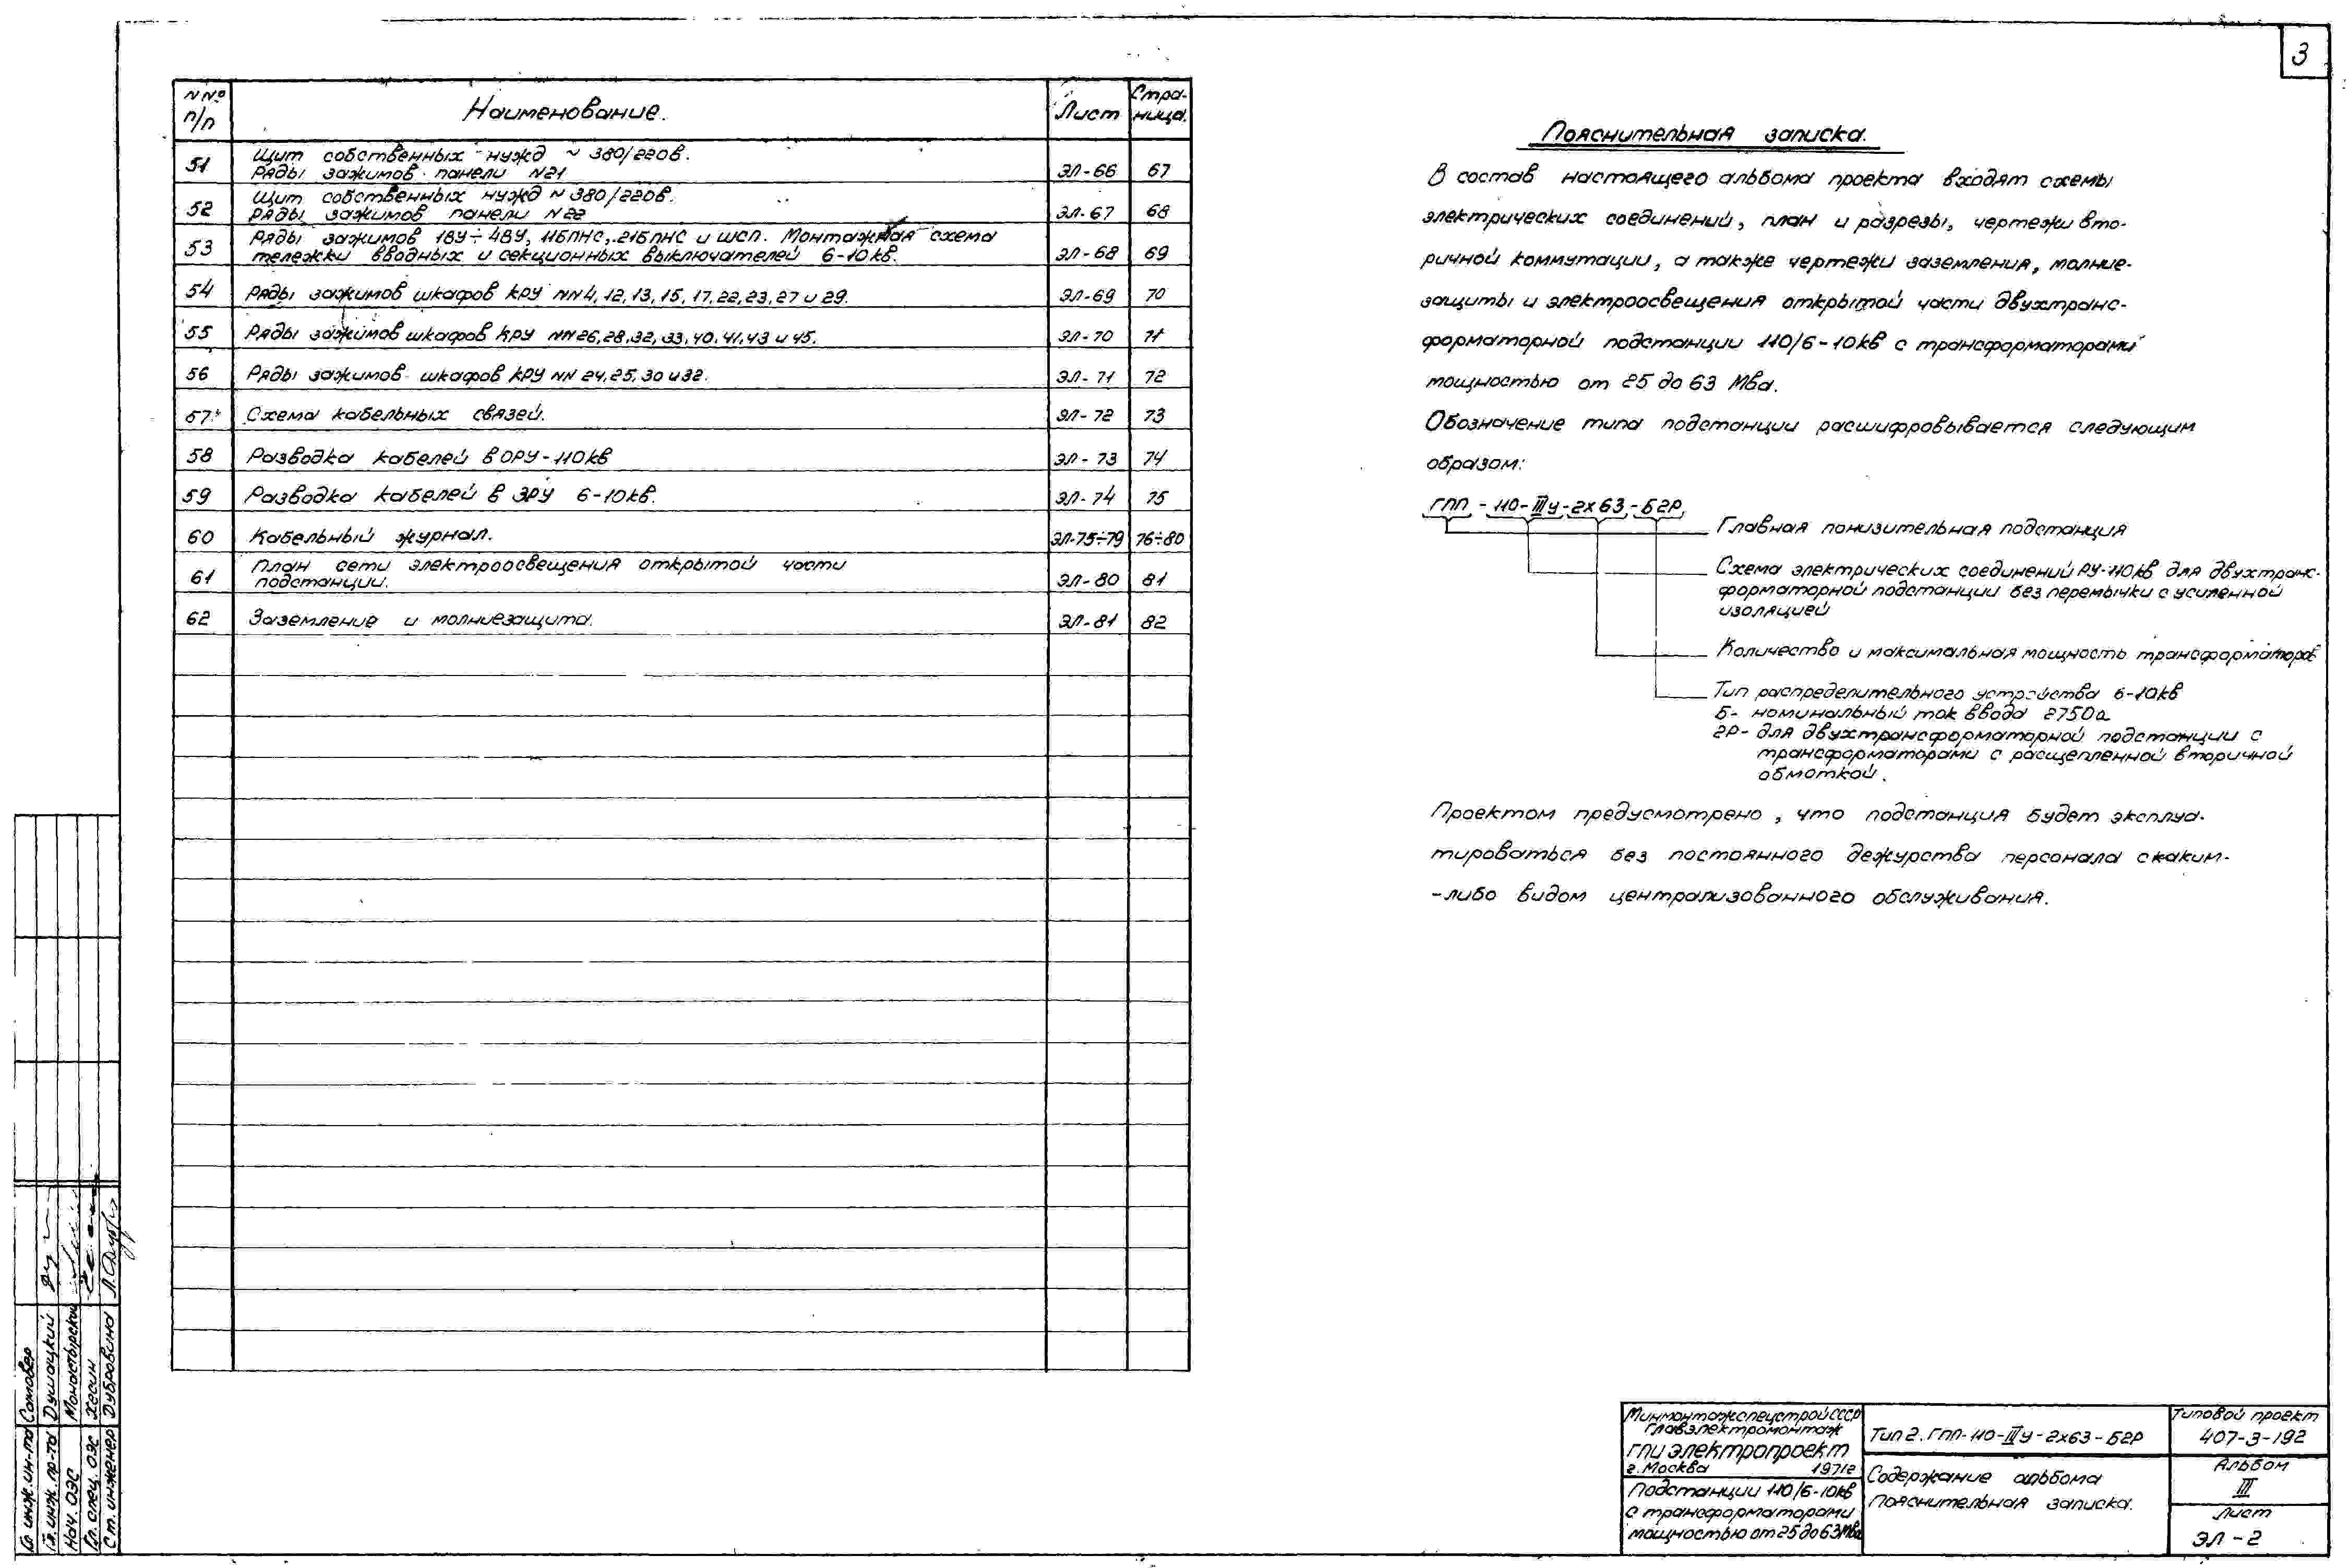 3
NN№ п/п Наименование. Лист Стра-ница.
51 Щит собственных нужд ~ 380/220в. Ряды зажимов панели N21 ЭЛ-66 67
52 Щит собственных нужд ~ 380/220в. Ряды зажимов панели N22 ЭЛ-67 68
53 Ряды зажимов 1ВУ÷4ВУ, 11БПНС, 21БПНС и ШСП. Монтажная схема тележки вводных и секционных выключателей 6-10кв. ЭЛ-68 69
54 Ряды зажимов шкафов КРУ NN4, 12, 13, 15, 17, 22, 23, 27 и 29. ЭЛ-69 70
55 Ряды зажимов шкафов КРУ NN26, 28, 32, 33, 40, 41, 43 и 45. ЭЛ-70 71
56 Ряды зажимов шкафов КРУ NN 24, 25, 30 и 32. ЭЛ-71 72
57. Схема кабельных связей. ЭЛ-72 73
58 Разводка кабелей в ОРУ-110кв ЭЛ-73 74
59 Разводка кабелей в ЗРУ 6-10кв. ЭЛ-74 75
60 Кабельный журнал. ЭЛ-75÷79 76÷80
61 План сети электроосвещения открытой части подстанции. ЭЛ-80 81
62 Заземление и молниезащита. ЭЛ-81 82
Пояснительная записка.
В состав настоящего альбома проекта входят схемы
электрических соединений, план и разрезы, чертежи вто-
ричной коммутации, а также чертежи заземления, молние-
защиты и электроосвещения открытой части двухтранс-
форматорной подстанции 110/6-10кв с трансформаторами
мощностью от 25 до 63 Мва.
Обозначение типа подстанции расшифровывается следующим
образом:
ГПП - 110-IIIу-2х63-Б2Р
Главная понизительная подстанция
Схема электрических соединений РУ-110кв для двухтранс-
форматорной подстанции без перемычки с усиленной
изоляцией
Количество и максимальная мощность трансформаторов
Тип распределительного устройства 6-10кв
Б- номинальный ток ввода 2750а
2Р- для двухтрансформаторной подстанции с
трансформаторами с расщепленной вторичной
обмоткой.
Проектом предусмотрено, что подстанция будет эксплуа-
тироваться без постоянного дежурства персонала с каким-
-либо видом централизованного обслуживания.
Гл. инж. ин-та
Гл. инж. пр-та Душацкий
Нач. ОЭС Монастырский
Гл. спец. ОЭС Хесин
Ст. инженер Дубровина
Минмонтажспецстрой СССР
Главэлектромонтаж
ГПИ электропроект
г. Москва 1971г
Подстанции 110/6-10кв
с трансформаторами
мощностью от 25 до 63Мва
Тип 2. ГПП-110-IIIу-2х63-Б2Р
Содержание альбома
Пояснительная записка.
Типовой проект
407-3-192
Альбом
III
Лист
ЭЛ-2